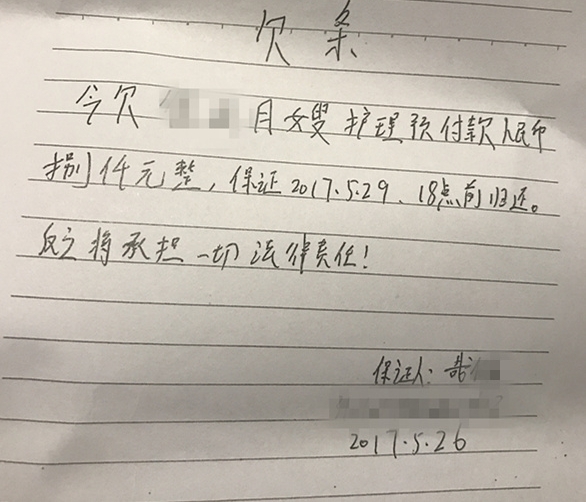 欠条
今欠 月嫂护理预付款人民币
捌仟元整，保证2017.5.29、18点前归还。
反之将承担一切法律责任！
保证人：
2017.5.26